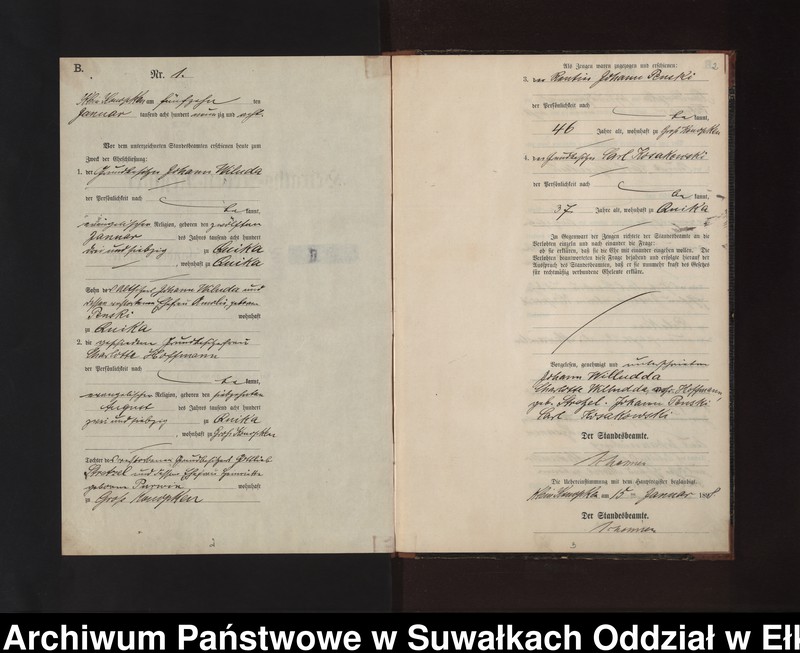 B.
Nr. 1.
Klein Konopken am fünfzehn ten
Januar tausend acht hundert neun zig und acht.
Vor dem unterzeichneten Standesbeamten erschienen heute zum
Zweck der Eheschließung:
1. der Grundbesitzer Johann Willudda
der Persönlichkeit nach
be kannt,
evangelischer Religion, geboren den zwölften
Januar des Jahres tausend acht hundert
drei und siebzig zu Quika
, wohnhaft zu Quika
Sohn des Altsitzers Johann Willudda und
dessen verstorbenen Ehefrau Amalie, geborene
Penski wohnhaft
zu Quika
2. die geschiedene Grundbesitzerfrau
Charlotte Hoffmann
der Persönlichkeit nach
be kannt,
evangelischer Religion, geboren den
August des Jahres tausend acht hundert
zwei und siebzig zu Quika
, wohnhaft zu Groß Konopken
Tochter des verstorbenen Grundbesitzers Gottlieb
Stretzel und dessen Ehefrau Henriette
geborene wohnhaft
zu Groß Konopken
2
2
Als Zeugen waren zugezogen und erschienen:
3. der Rentier Johann Penski
der Persönlichkeit nach
be kannt,
46 Jahre alt, wohnhaft zu Groß Konopken
4. der Grundbesitzer Carl Kosakowski
der Persönlichkeit nach
be kannt,
37 Jahre alt, wohnhaft zu Quika
In Gegenwart der Zeugen richtete der Standesbeamte an die
Verlobten einzeln und nach einander die Frage:
ob sie erklären, daß sie die Ehe mit einander eingehen wollen. Die
Verlobten beantworteten diese Frage bejahend und erfolgte hierauf der
Ausspruch des Standesbeamten, daß er sie nunmehr kraft des Gesetzes
für rechtmäßig verbundene Eheleute erkläre.
Vorgelesen, genehmigt und unterschrieben
Johann Willudda
Charlotte Willudda, gesch. Hoffmann,
geb. Stretzel. Johann Penski
Carl Kosakowski
Der Standesbeamte.
Die Uebereinstimmung mit dem Hauptregister beglaubigt.
Klein Konopken am 15 ten Januar 1898
Der Standesbeamte.
3
Archiwum Państwowe w Suwałkach Oddział w Ełk